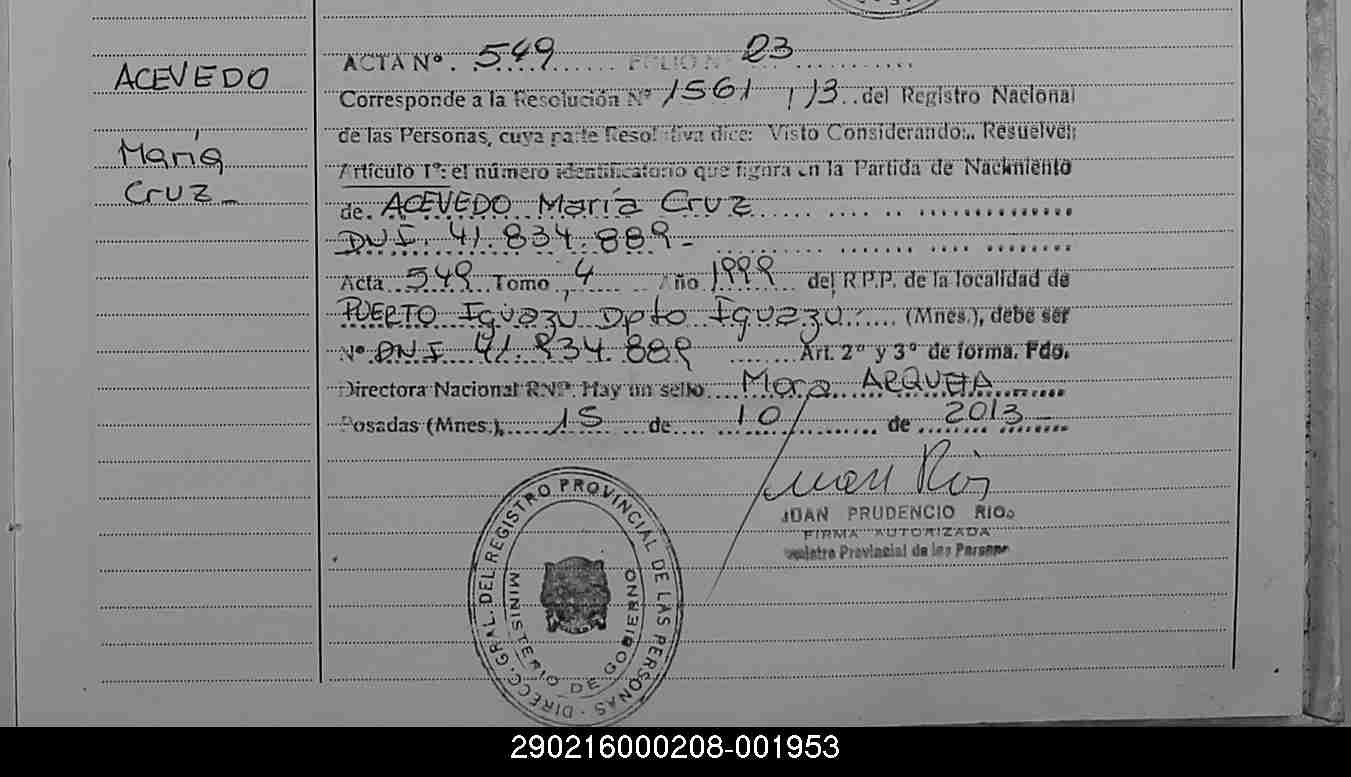 ACEVEDO
María
Cruz -
ACTA Nº. 549 FOLIO Nº 23
Corresponde a la Resolución Nº 1561 /13 del Registro Nacional
de las Personas, cuya parte Resolutiva dice: Visto Considerando:.. Resuelve:
Artículo 1º: el número identificatorio que figura en la Partida de Nacimiento
de ACEVEDO María Cruz
DNI. 41.834.889-
Acta 549 Tomo 4 Año 1999 del R.P.P. de la localidad de
PUERTO Iguazu Dpto Iguazu (Mnes.), debe ser
Nº DNI 41.834.889 Art. 2º y 3º de forma. Fdo.
Directora Nacional RNP. Hay un sello Mora ARQUETA
Posadas (Mnes.), 15 de 10 de 2013-
JUAN PRUDENCIO RIOS
FIRMA AUTORIZADA
Registro Provincial de las Personas
DIRECC. GRAL. DEL REGISTRO PROVINCIAL DE LAS PERSONAS
MINISTERIO DE GOBIERNO
290216000208-001953